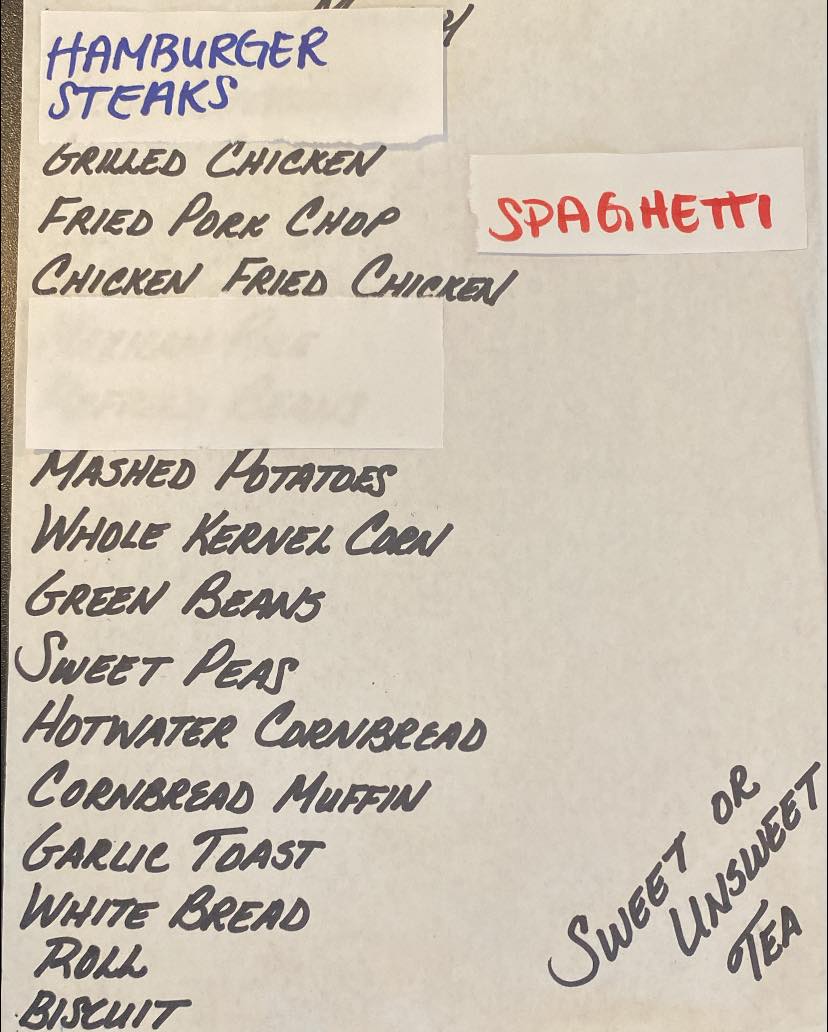 HAMBURGER
STEAKS
GRILLED CHICKEN
SPAGHETTI
FRIED PORK CHOP
CHICKEN FRIED CHICKEN
MASHED POTATOES
WHOLE KERNEL CORN
GREEN BEANS
SWEET PEAS
HOTWATER CORNBREAD
CORNBREAD MUFFIN
GARLIC TOAST
WHITE BREAD
ROLL
BISCUIT
SWEET OR
UNSWEET
TEA